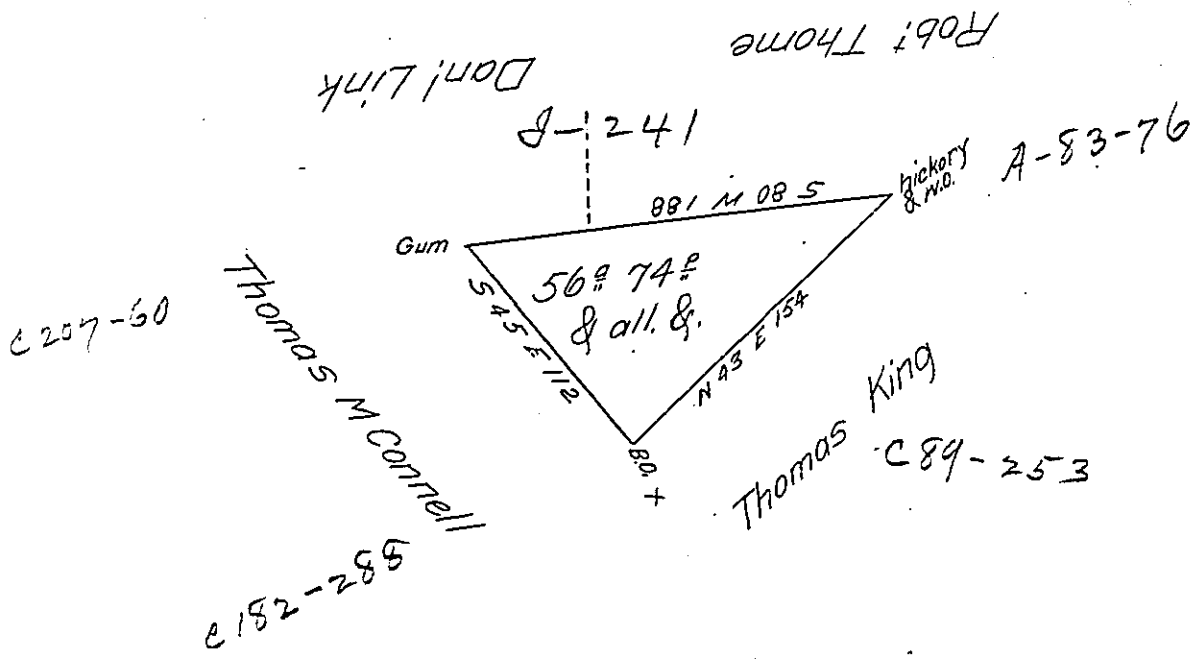 Robt Thorne
Danl Link
J-241
A-83-76
hickory
& W.O.
S 80 W 188
Gum
56 a 74 p
& all. &.
S 45 E 112
N 43 E 154
C207-60
Thomas M Connell
Thomas King
C89-253
B.O.
+
C182-288